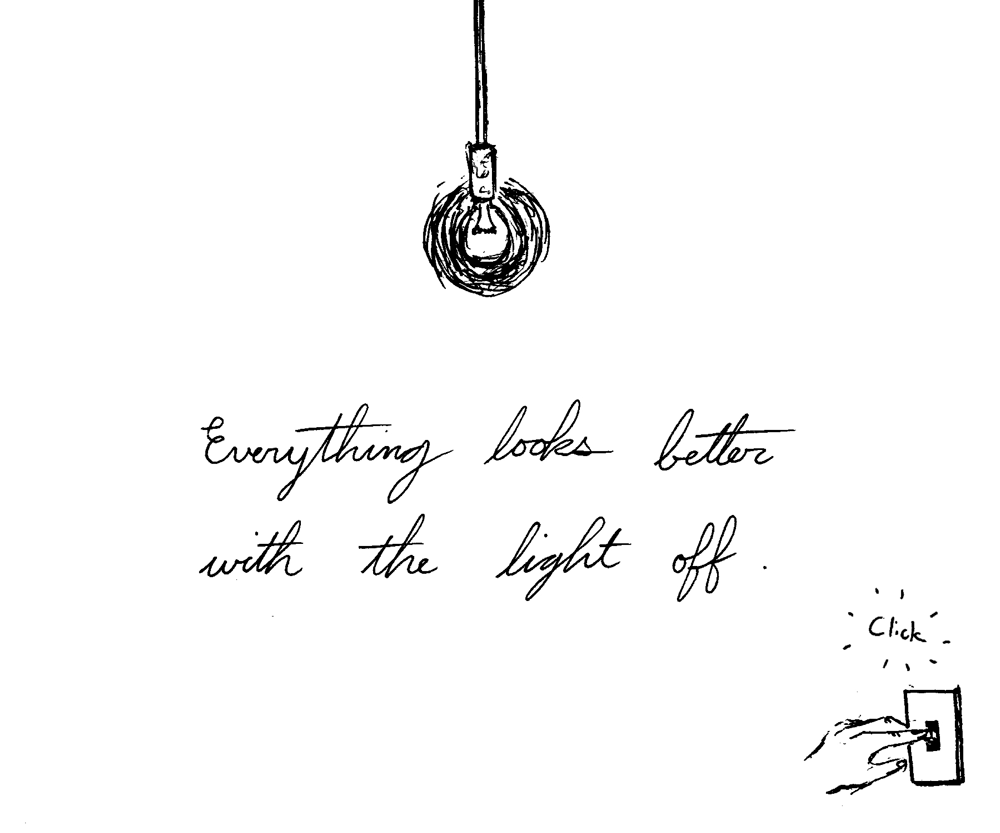 Everything looks better
with the light off.
Click